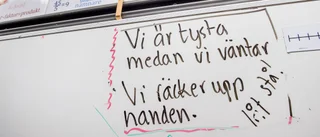 Vi är tysta
medan vi väntar
Vi räcker upp
handen.